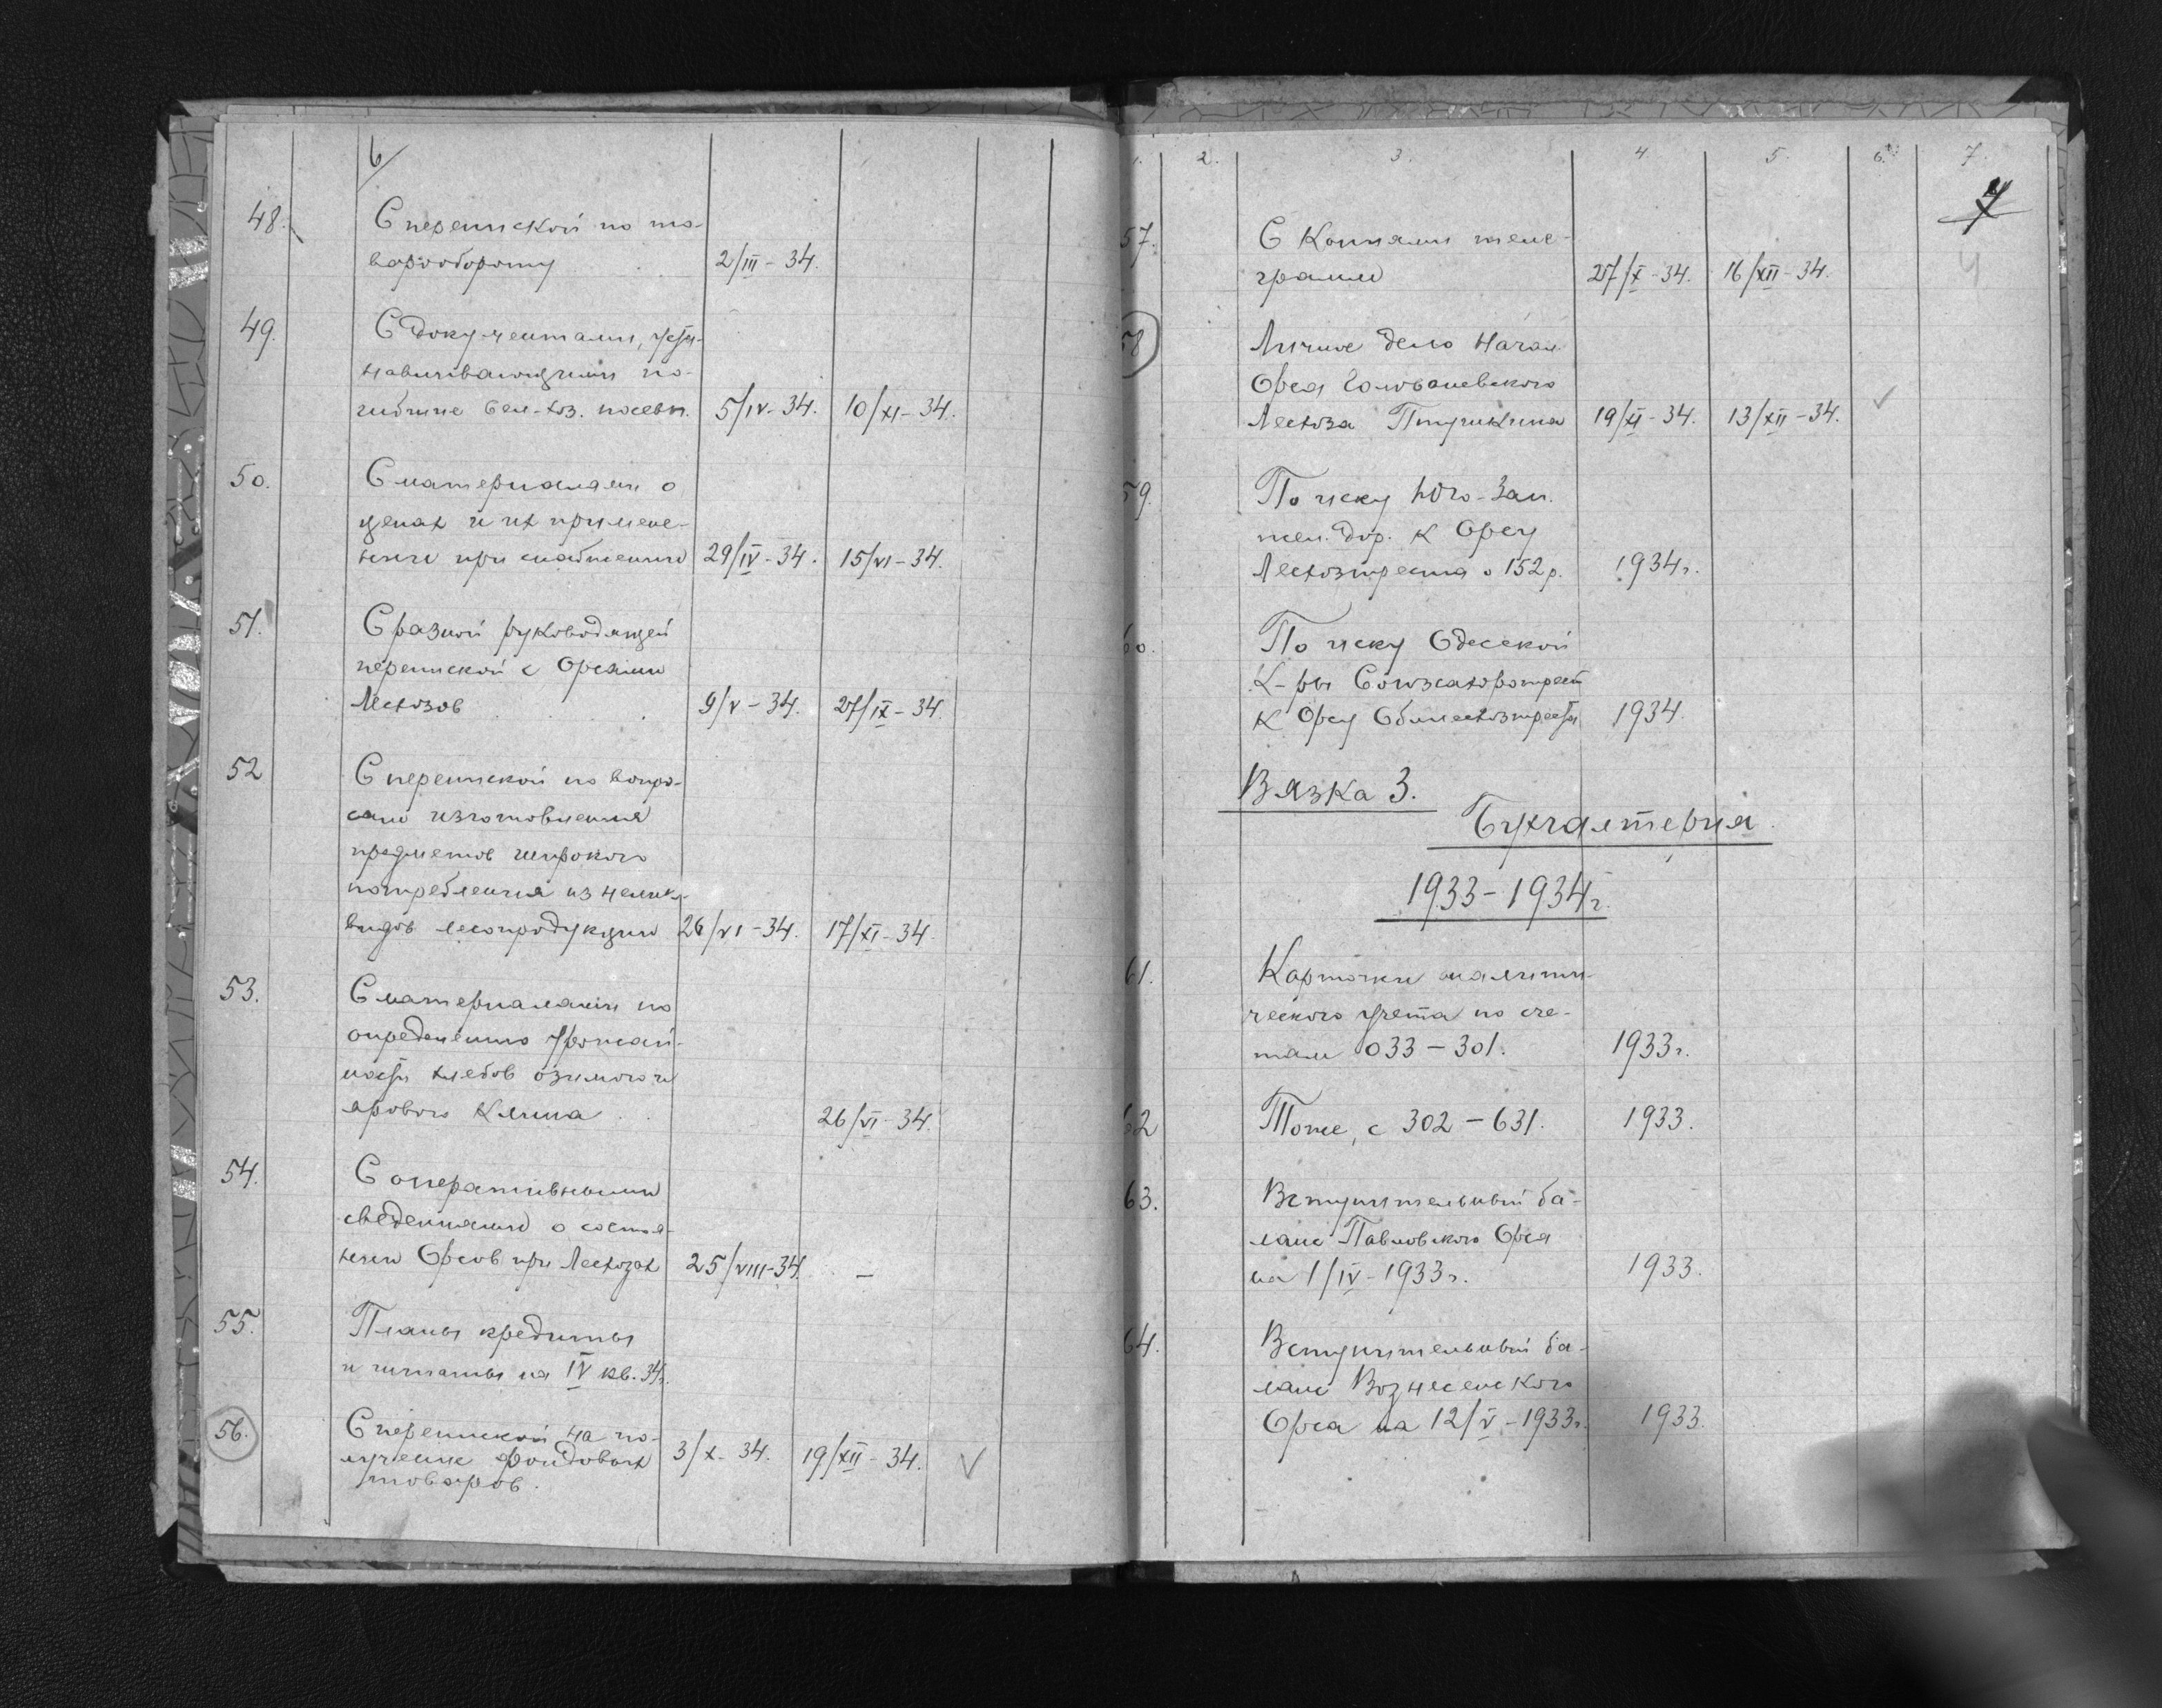 6/
48. С перепиской по то-
варообороту 2/III - 34.
49. С документами, уста-
навливающими по-
гибшие сел-хоз. посевы. 5/IV - 34. 10/XI - 34.
50. С материалами о
ценах и их примене-
нии при снабжении 29/IV - 34. 15/VI - 34.
51. С разной руководящей
перепиской с Орсами
Лесхозов 9/V - 34. 27/IX - 34.
52 С перепиской по вопро-
сам изготовления
предметов широкого
потребления из нелик-
видов лесопродукции 26/VI - 34. 17/XI - 34.
53. С материалами по
определению урожай-
ности хлебов озимого и
ярового клина 26/VI - 34.
54. С оперативными
сведениями о состоя-
нии Орсов при Лесхозах 25/VIII - 34. —
55. Планы кредиты
и штаты на IV кв. 34г.
56. С перепиской на по-
лучение фондовых 3/X - 34. 19/XII - 34. V
товаров.
1. 2. 3. 4. 5. 6. 7.
7
4
57. С копиями теле-
грамм 27/X - 34. 16/XII - 34.
58 Личное дело Начал.
Орса Голованевского
Лесхоза Птушкина 19/XI - 34. 13/XII - 34. V
59. По иску Юго-Зап.
жел. дор. к Орсу
Лесхозтреста о 152 р. 1934г.
60. По иску Одесской
К-ры Союзсахаротрест
к Орсу Облместхозтреста 1934.
Вязка 3.
Бухгалтерия.
1933 - 1934г.
61. Карточки аналити-
ческого учета по сче-
там 033 - 301. 1933г.
62 Тоже, с 302 - 631. 1933.
63. Вступительный ба-
ланс Павловского Орса
на 1/IV - 1933г. 1933.
64. Вступительный ба-
ланс Вознесенского
Орса на 12/V - 1933г. 1933.